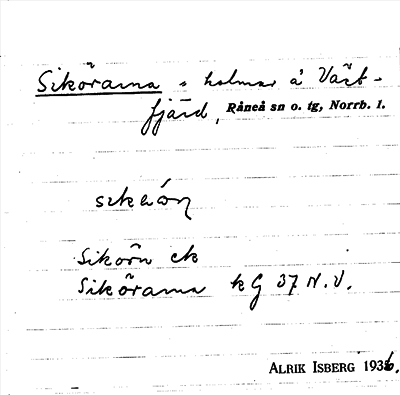 Siköarna = holmar å Väst-
fjärd, Råneå sn o. tg, Norrb. l.
Sikörn ek
Sikörarna kG 37 N.V.
ALRIK ISBERG 1936.